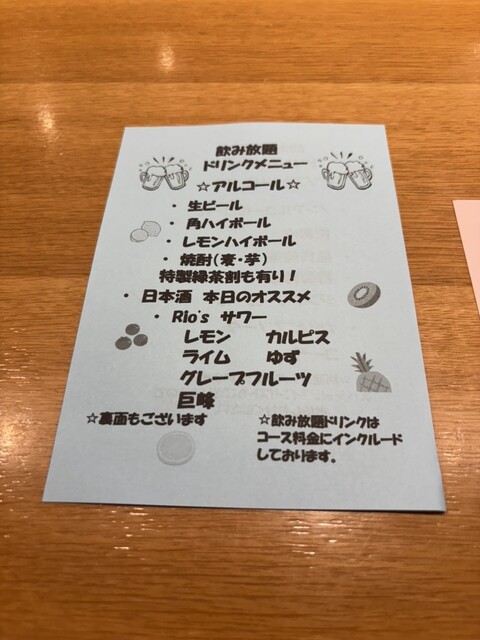 飲み放題
ドリンクメニュー
☆アルコール☆
・ 生ビール
・ 角ハイボール
・ レモンハイボール
・ 焼酎(麦・芋)
特製緑茶割も有り！
・ 日本酒 本日のオススメ
・ Rio's サワー
レモン カルピス
ライム ゆず
グレープフルーツ
巨峰
☆裏面もございます
☆飲み放題ドリンクは
コース料金にインクルード
しております。